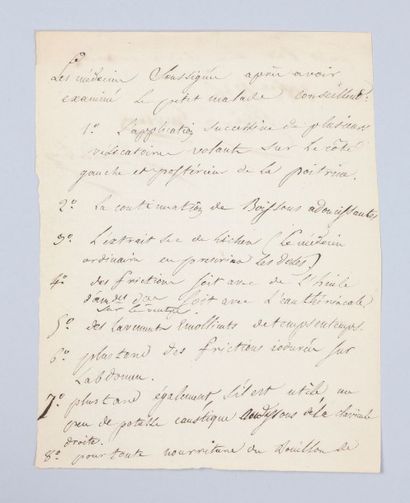 Les médecins Soussignés après avoir
examiné le petit malade conseillent:
1.° L'application successive de plusieurs
vesicatoires volants sur le côté
gauche et postérieur de la poitrine.
2.° la continuation de Boissons adoucissantes
3.° L'extrait sec de lichen (le médecin
ordinaire en prescrira les doses)
4.° des frictions soit avec de l'huile
soit avec l'eau thériacale
sur le ventre
5.° des lavements émollients de temps en temps
6.° plus tard des frictions iodurées sur
l'abdomen.
7.° plus tard également, s'il est utile un
peu de potasse caustique au dessous de la clavicule
droite.
8.° pour toute nourriture du Bouillon de